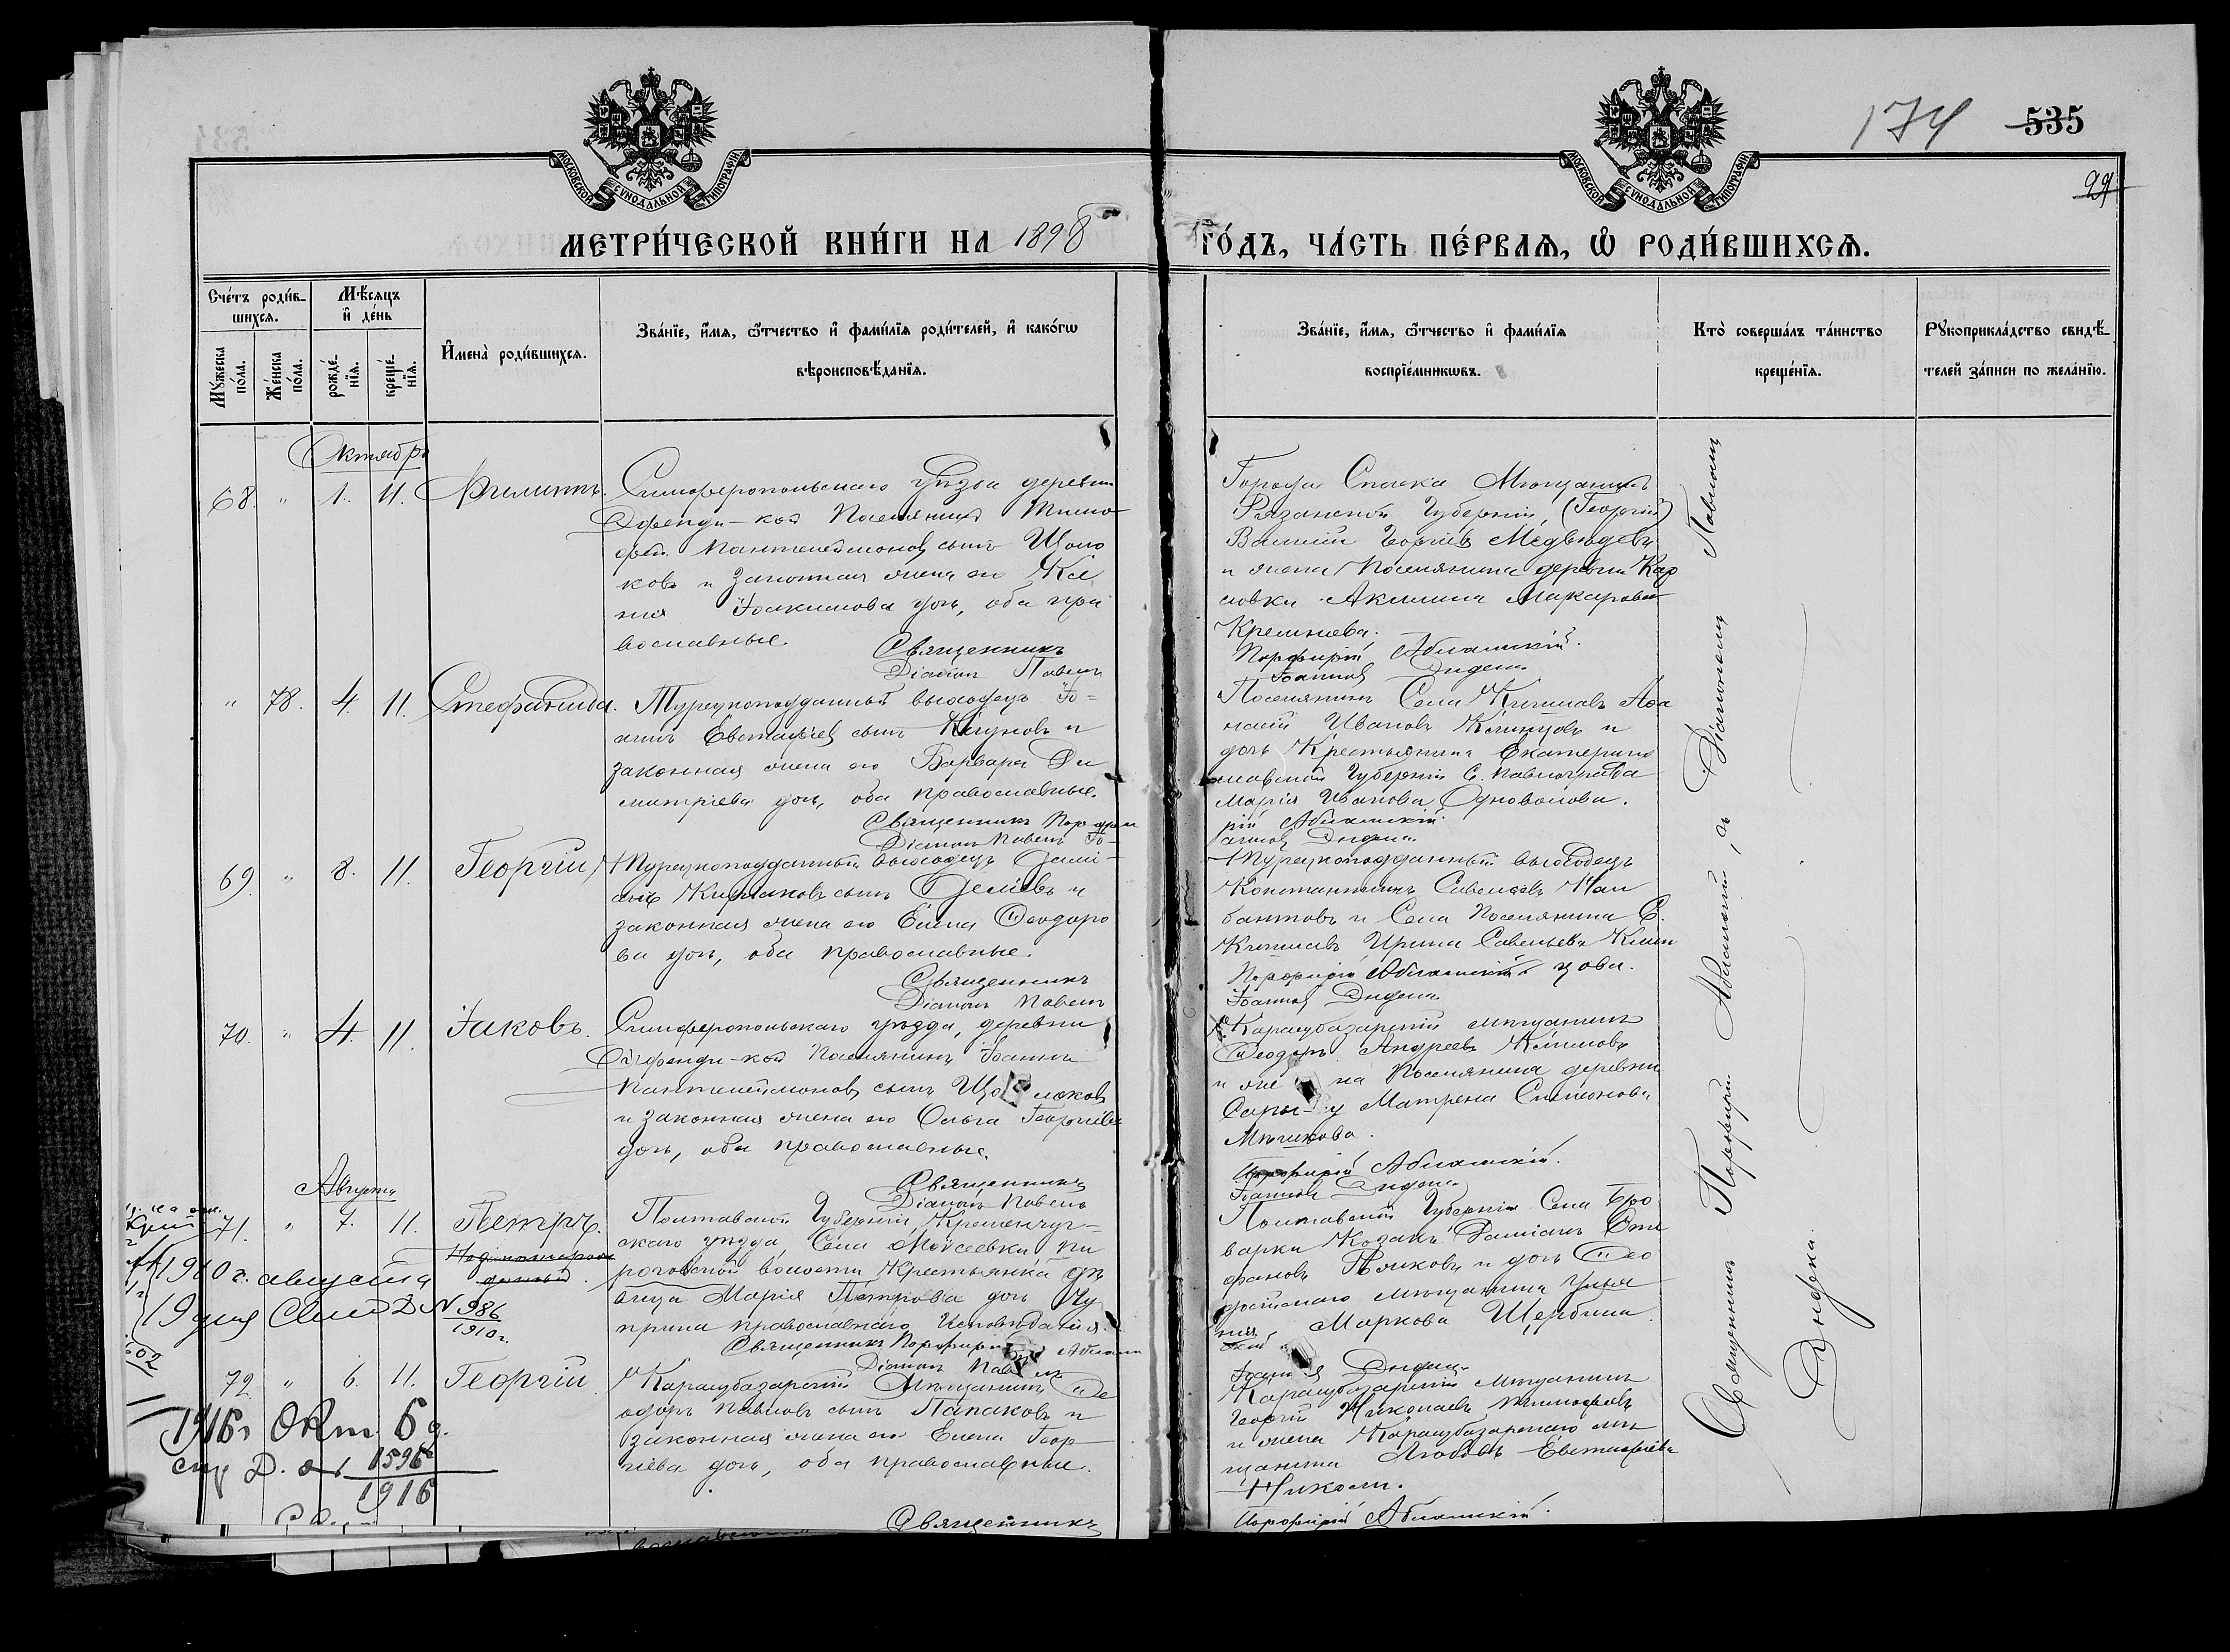 174 535
99
МОСКОВСКОЙ СѴНОДАЛЬНОЙ ТИПОГРАФІИ
МОСКОВСКОЙ СѴНОДАЛЬНОЙ ТИПОГРАФІИ
МЕТРИ́ЧЕСКОЙ КНИ́ГИ НА 1898 ГО́ДЪ, ЧА́СТЬ ПЕ́РВАѦ, Ѡ҆ РОДИ́ВШИХСѦ.
Сче́тъ роди́в-
шихсѧ.
Мѹ́жеска по́ла.
Же́нска по́ла.
Мѣ́сѧцъ и҆ де́нь
рожде́-нїѧ.
креще́-нїѧ.
И҆мена̀ роди́вшихсѧ.
Зва́нїе, и҆́мѧ, ѻ҆́тчество и҆ фами́лїѧ роди́телей, и҆ како́гѡ
вѣроисповѣ́данїѧ.
Зва́нїе, и҆́мѧ, ѻ҆́тчество и҆ фами́лїѧ
воспрїе́мникѡвъ.
Кто̀ соверша́лъ та́инство
креще́нїѧ.
Рѹкоприкла́дство свидѣ́-
телей за́писи по жела́нїю.
Октябрь
68. " 1. 11. Филиппъ.
Симферопольскаго уѣзда деревни
Эфенди-кой Поселянинъ Тимо-
фей Пантелеймоновъ сынъ Щоло
ковъ и законная жена его Ксе
нія Іоакимова дочь, оба пра
вославные.
Священникъ
Діаконъ Павелъ
Города Спаска Мѣщанинъ
Рязанской Губерніи, (Георгій)
Василій Георгіевъ Медвѣдевъ
и жена Поселянина деревни Кар
ловки Акилина Макарова
Кремнева.
Порфирій Абламскій.
Іоанновъ Дидена
" 78. 4. 11. Стефанида.
Турецкоподданный выходецъ Іо-
аннъ Евстафіевъ сынъ
законная жена его Варвара Ди
митріева дочь, оба православные.
Священникъ Порфи
Діаконъ Павелъ Іо-
Поселянинъ Села Кишлавъ Аѳа
насій Ивановъ Клинцовъ и
дочь Крестьянина Екатерино
славской Губерніи С. Павлограда
Марія Иванова Одноволова.
рій Абламскій
анновъ Дидена
69. " 8. 11. Георгій
Турецкоподданный выходецъ
сынъ Делиевъ и
законная жена его Елена Ѳеодоро
ва дочь, оба православные.
Священникъ
Діаконъ Павелъ
Турецкоподданный выходецъ
Константинъ Савельевъ
и Села Поселянина С.
Кишлавъ Ирина Савельева Клин
цова.
Порфирій Абламскій
Іоанновъ Дидена
70. " 4. 11. Іаковъ.
Симферопольскаго уѣзда, деревни
Эфенди-кой Поселянинъ Іоаннъ
Пантелеймоновъ сынъ Щолоковъ
и законная жена его Ольга Георгіева
дочь, оба православные.
Священникъ
Діаконъ Павелъ
Карасубазарскій мѣщанинъ
Ѳеодоръ Андреевъ Климовъ
и жена Поселянина деревни
Сарысу Матрена Симеонова
Порфирій Абламскій.
Іоанновъ Дидена
Августа
71. " 7. 11. Петръ.
Полтавской Губерніи Кременчуг-
скаго уѣзда, Села Моисеевки Пи
роговской волости Крестьянка дѣ
вица Марія Петрова дочь Чу
прина православнаго Исповѣданія.
Священникъ Порфирій Аблам
Діаконъ Павелъ
Полтавской Губерніи Села Бро
варки Козакъ Даміанъ Сте
фановъ и дочь Ѳео
досійскаго мѣщанина Улья
ния Маркова Щербина.
скій
Іоанновъ Дидена
1910 г. августа
19 дня N 986
1910 г.
72 " 6. 11. Георгій
Карасубазарскій Мѣщанинъ Ѳе
одоръ Павловъ сынъ Папаковъ и
законная жена его Елена Геор
гіева дочь, оба православные.
Священникъ
Карасубазарскій мѣщанинъ
Георгій Николаевъ Тимофеевъ
и жена Карасубазарскаго мѣ
щанина Любовь Евстафіева
Николи.
Порфирій Абламскій.
1916 г. Окт 6 д.
1596
1916
Священникъ Порфирій Абламскій, съ Діакономъ Павломъ
Дидена.